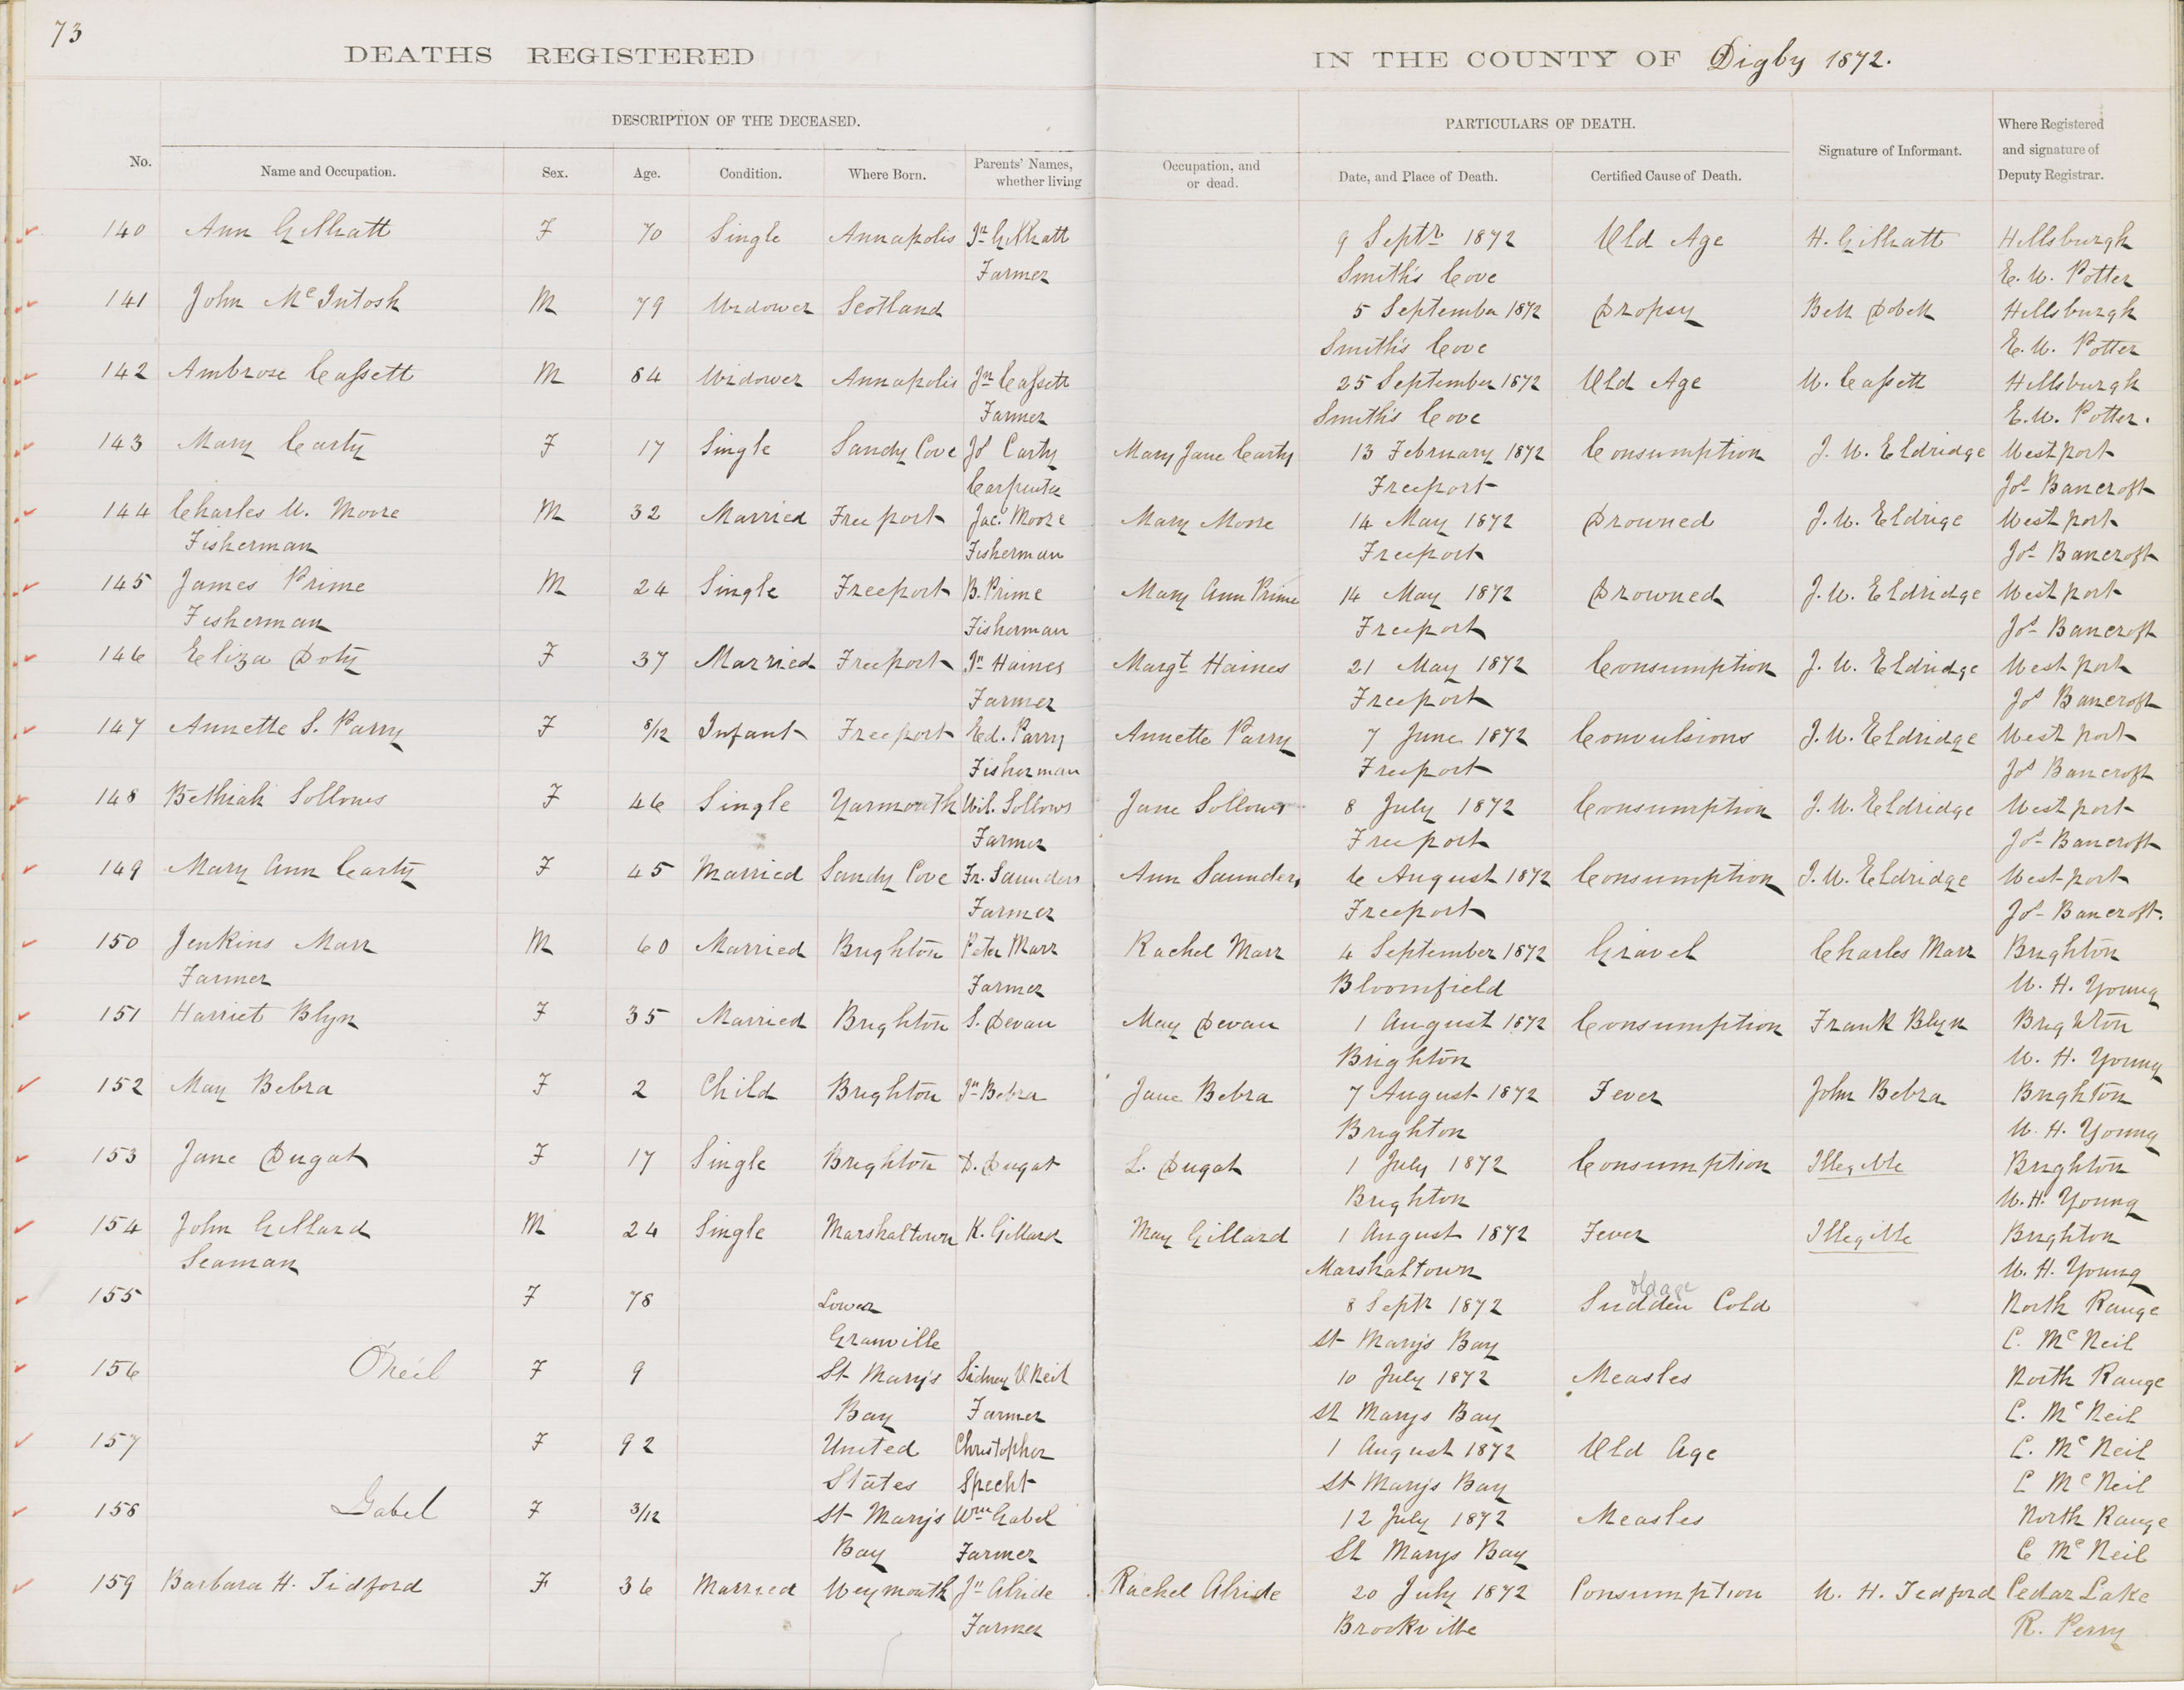 73
DEATHS REGISTERED IN THE COUNTY OF Digby 1872.
DESCRIPTION OF THE DECEASED. PARTICULARS OF DEATH. Where Registered and signature of Deputy Registrar.
No. Name and Occupation. Sex. Age. Condition. Where Born. Parents' Names, whether living Occupation, and or dead. Date, and Place of Death. Certified Cause of Death. Signature of Informant.
140 Ann Gilliatt F 70 Single Annapolis Jn Gilliatt 9 Septr 1872 Old Age H. Gilliatt Hillsburgh
Farmer Smith's Cove E. W. Potter
141 John McIntosh M 79 Widower Scotland 5 September 1872 Dropsy Bell Dobell Hillsburgh
Smith's Cove E. W. Potter
142 Ambrose Cassett M 84 Widower Annapolis Jas Cassett 25 September 1872 Old Age W. Cassett Hillsburgh
Farmer Smith's Cove E. W. Potter.
143 Mary Carty F 17 Single Sandy Cove Js Carty Mary Jane Carty 13 February 1872 Consumption J. W. Eldridge Westport
Carpenter Freeport Jos Bancroft
144 Charles W. Moore M 32 Married Freeport Jac. Moore Mary Moore 14 May 1872 Drowned J. W. Eldrige Westport
Fisherman Fisherman Freeport Jos Bancroft
145 James Prime M 24 Single Freeport B. Prime Mary Ann Prime 14 May 1872 Drowned J. W. Eldridge Westport
Fisherman Fisherman Freeport Jos Bancroft
146 Eliza Doty F 37 Married Freeport Jn Haines Margt Haines 21 May 1872 Consumption J. W. Eldridge Westport
Farmer Freeport Jos Bancroft
147 Annette S. Parry F 8/12 Infant Freeport Ed. Parry Annette Parry 7 June 1872 Convulsions J. W. Eldridge Westport
Fisherman Freeport Jos Bancroft
148 Bethiah Sollows F 46 Single Yarmouth Wil. Sollows Jane Sollows 8 July 1872 Consumption J. W. Eldridge Westport
Farmer Freeport Jos Bancroft
149 Mary Ann Carty F 45 Married Sandy Cove Fr. Saunders Ann Saunders 6 August 1872 Consumption J. W. Eldridge Westport
Farmer Freeport Jos Bancroft.
150 Jenkins Marr M 60 Married Brighton Peter Marr Rachel Marr 4 September 1872 Gravel Charles Marr Brighton
Farmer Farmer Bloomfield W. H. Young
151 Harriet Blyn F 35 Married Brighton S. Devan May Devan 1 August 1872 Consumption Frank Blyn Brighton
Brighton W. H. Young
152 May Bebra F 2 Child Brighton Jn Bebra Jane Bebra 7 August 1872 Fever John Bebra Brighton
Brighton W. H. Young
153 Jane Dugat F 17 Single Brighton D. Dugat L. Dugat 1 July 1872 Consumption Illegible Brighton
Brighton W. H. Young
154 John Gillard M 24 Single Marshaltown K. Gillard May Gillard 1 August 1872 Fever Illegible Brighton
Seaman Marshaltown W. H. Young
old age
155 F 78 Lower 8 Septr 1872 Sudden Cold North Range
Granville St Mary's Bay C. McNeil
156 O'neil F 9 St Mary's Sidney O'Neil 10 July 1872 Measles North Range
Bay Farmer St Marys Bay C. McNeil
157 F 92 United Christopher 1 August 1872 Old Age C. McNeil
States Specht St Mary's Bay C McNeil
158 Gabel F 3/12 St Mary's Wm Gabel 12 July 1872 Measles North Range
Bay Farmer St Marys Bay C McNeil
159 Barbara H. Tidford F 36 Married Weymouth Jn Alride Rachel Alride 20 July 1872 Consumption W. H. Tedford Cedar Lake
Farmer Brookville R. Perry